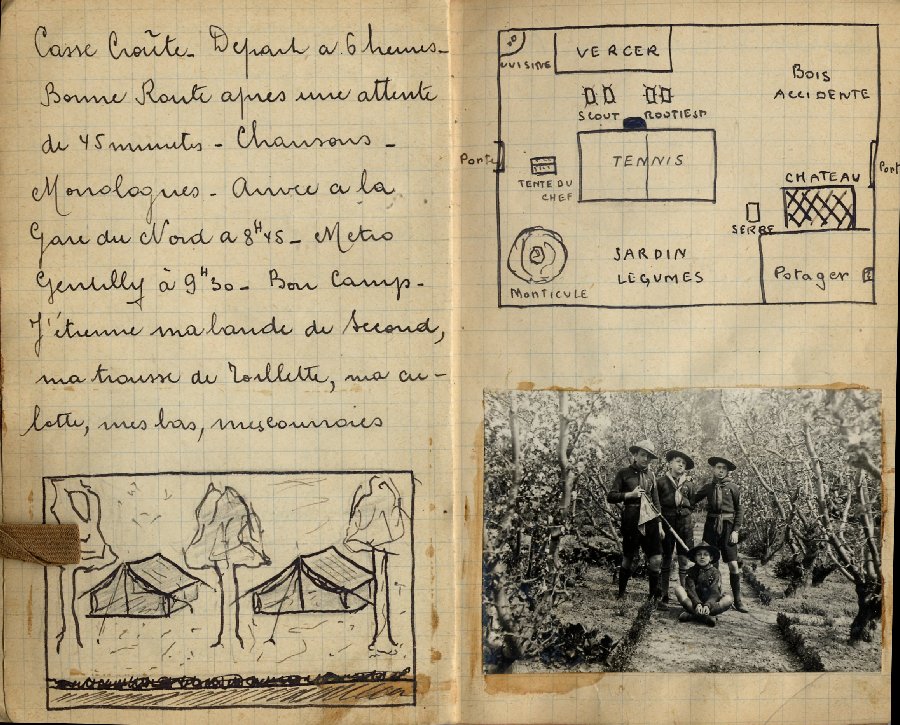 Casse Croûte - Depart a 6 heures -
Bonne Route apres une attente
de 45 minutes - Chansons -
Monologues - Arrivee a la
Gare du Nord a 8H45 - Metro
Gentilly à 9H30 - Bon Camp -
J'étrenne ma bande de Second,
ma trousse de Toillette, ma cu-
lotte, mes bas, mes courroies
CUISINE
VERGER
BOIS
ACCIDENTE
SCOUT ROUTIEST
Porte
TENNIS
Port
TENTE DU
CHEF
CHATEAU
SERRE
JARDIN
LEGUMES
Potager
MONTICULE